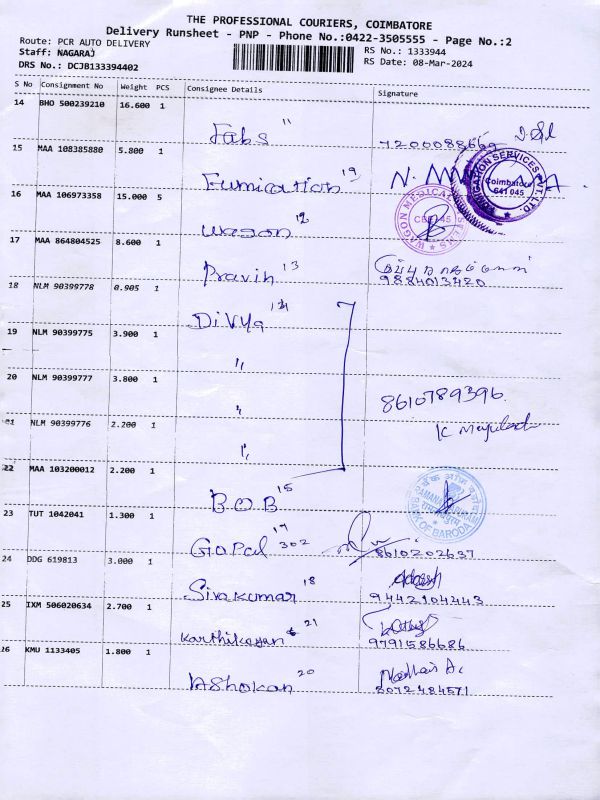 THE PROFESSIONAL COURIERS, COIMBATORE
Delivery Runsheet - PNP - Phone No.:0422-3505555 - Page No.:2
Route: PCR AUTO DELIVERY
Staff: NAGARAJ
RS No.: 1333944
DRS No.: DCJB133394402
RS Date: 08-Mar-2024
S No Consignment No Weight PCS Consignee Details Signature
14 BHO 500239210 16.600 1
Fabs 11
7200088669
15 MAA 108385880 5.800 1
Fumigation 19
Coimbatore
641 045
16 MAA 106973358 15.000 5
Wagon 12
WAGON MEDICAL
CBE-45
17 MAA 864804525 8.600 1
Pravin 13
9884013420
18 NLM 90399778 0.905 1
Divya 14
19 NLM 90399775 3.900 1
"
20 NLM 90399777 3.800 1
"
8610789396
21 NLM 90399776 2.200 1
"
22 MAA 103200012 2.200 1
B.O.B 15
BANK OF BARODA
23 TUT 1042041 1.300 1
Gopal 302 17
8610202637
24 DDG 619813 3.000 1
Sivakumar 18
9442104443
25 IXM 506020634 2.700 1
Karthikeyan 21
9791586686
26 KMU 1133405 1.800 1
Ashokan 20
8072484571